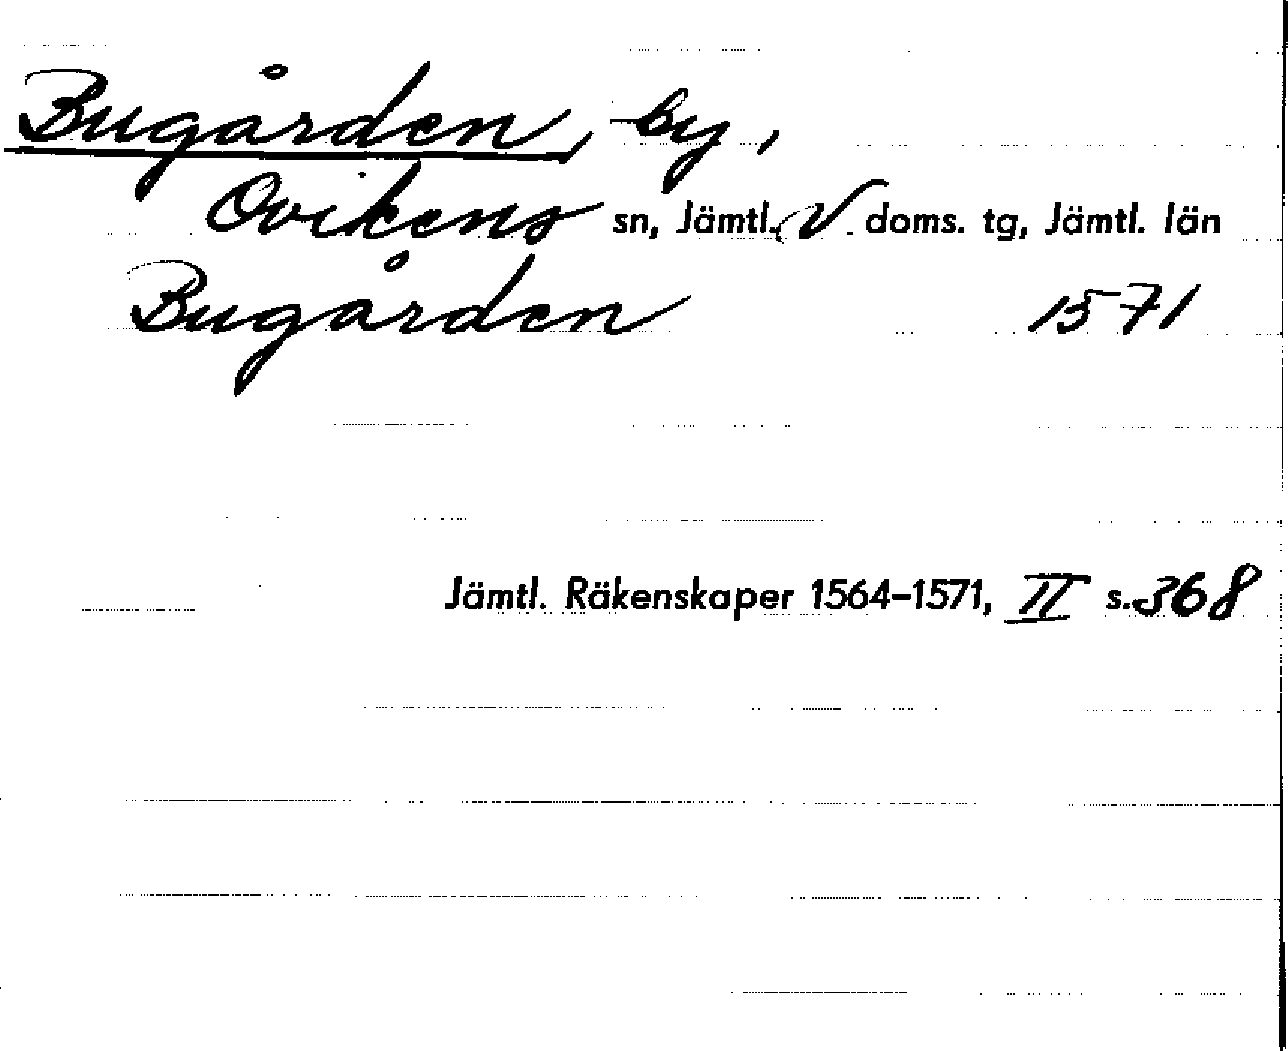 Bugården, by,
Ovikens sn, Jämtl. V. doms. tg, Jämtl. län
Bugården 1571
Jämtl. Räkenskaper 1564–1571, II s. 368